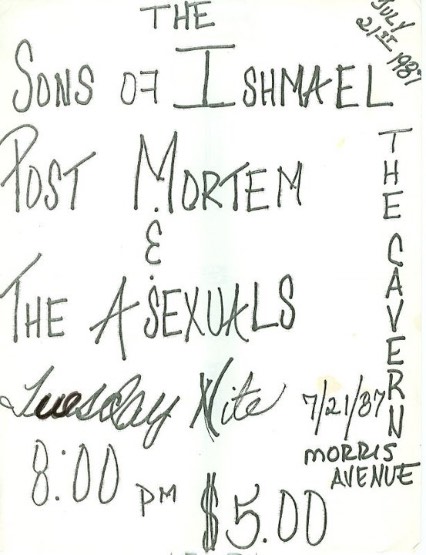 THE
JULY
21ST 1987
SONS OF ISHMAEL
POST MORTEM
&
THE ASEXUALS
THE CAVERN
Tuesday Nite
7/21/87
MORRIS
AVENUE
8:00 PM
$5.00